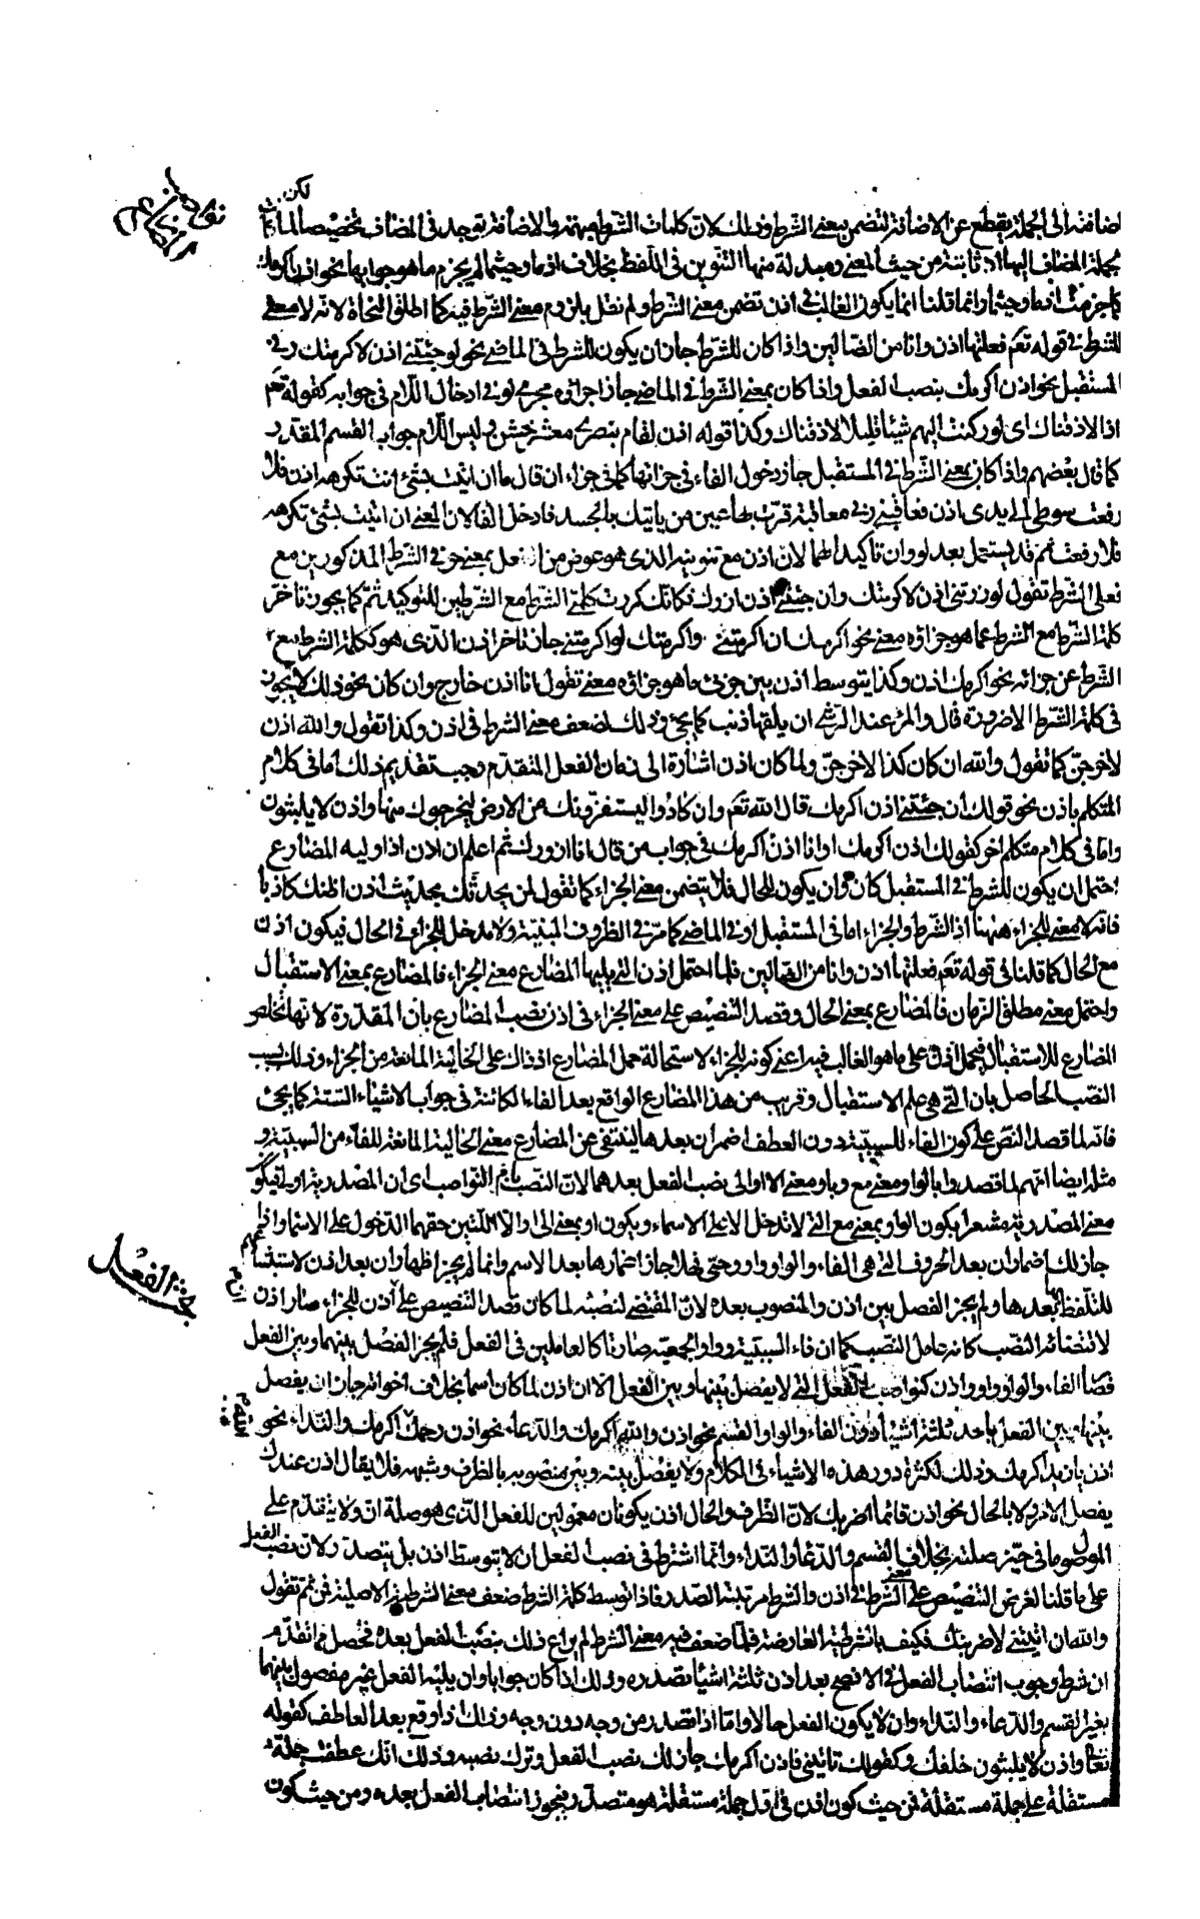 لكن
اضافته الى الجملة يقطع عن الاضافة لتضمن معنى الشرط وذلك لان كلمات الشرط مبهمة والاضافة توجد فى المضاف تخصيصا لما
جملة المضاف اليها اذ ثابتة من حيث المعنى ومبدلة منها التنوين فى اللفظ بخلاف اذما وحيثما لم يجزم ما هو جوابها نحو اذن اكرمك
كما جزمت اذما وحيثما وانما قلنا انما يكون الغالب فى اذن تضمن معنى الشرط ولم نقل بلزوم معنى الشرط فيه كما اطلق النحاة لانه لا معنى
للشرط فى قوله تعم فعلتها اذن وانا من الضالين واذا كان للشرط جاز ان يكون للشرط فى الماضى نحو لو جئتنى اذن لاكرمتك وفى
المستقبل نحو اذن اكرمك بنصب الفعل واذا كان بمعنى الشرط فى الماضى جاز اجراؤه مجرى لو فى ادخال اللام فى جوابه كقوله تعم
اذا لاذقناك اى لو ركنت اليهم شيئا قليلا لاذقناك وكذا قوله اذن لقام بنصرى معشر خشن وليس اللام جواب القسم المقدر
كما قال بعضهم واذا كان بمعنى الشرط فى المستقبل جاز دخول الفاء فى جزائها كما فى جزاء ان قال ما ان اتيت بشئ انت تكرهه اذن فلا
رفعت سوطى الى يدى اذن فعاقبنى ربى معاقبة قرت بها عين من ياتيك بالحسد فادخل الفا لان المعنى ان اتيت بشئ تكرهه
فلا رفعت ثم قد يستعمل بعد لو وان تاكيدا لهما لان اذن مع تنوينه الذى هو عوض من الفعل بمعنى حرفى الشرط المذكورين مع
فعلى الشرط تقول لو زرتنى اذن لاكرمتك وان جئتنى اذن ازورك فكانك كررت كلمتى الشرط مع الشرطين للتوكيد ثم كما يجوز تاخر
كلمة الشرط مع الشرط عما هو جزاؤه معنى نحو اكرمك ان اكرمتنى واكرمتك لو اكرمتنى جاز تاخر اذن الذى هو ككلمة الشرط مع
الشرط عن جزائه نحو اكرمك اذن وكذا يتوسط اذن بين جزئى ما هو جزاؤه معنى تقول انا اذن خارج وان كان نحو ذلك لا يجوز
فى كلمة الشرط الا ضرورة قال والمرء عند الرشى ان يلقها ذئب كما يجئ وذلك لضعف معنى الشرط فى اذن وكذا تقول والله اذن
لاخرجن كما تقول والله ان كان كذا لاخرجن ولما كان اذن اشارة الى زمان الفعل المتقدم وجب تقديم ذلك اما فى كلام
المتكلم باذن نحو قولك ان جئتنى اذن اكرمك قال الله تعم وان كادوا ليستفزونك من الارض ليخرجوك منها واذن لا يلبثون
واما فى كلام متكلم اخر كقولك اذن اكرمك او انا اذن اكرمك فى جواب من قال انا ازورك ثم اعلم ان اذن اذا وليه المضارع
احتمل ان يكون للشرط فى المستقبل كان وان يكون للحال فلا يتضمن معنى الجزاء كما تقول لمن يحدثك بحديث اذن اظنك كاذبا
فانه لا معنى للجزاء ههنا اذ الشرط والجزاء اما فى المستقبل او فى الماضى كما مر فى الظروف المبنية ولا مدخل للجزاء فى الحال فيكون اذن
مع الحال كما قلنا فى قوله تعم فعلتها اذن وانا من الضالين فلما احتمل اذن التى يليها المضارع معنى الجزاء فالمضارع بمعنى الاستقبال
واحتمل معنى مطلق الزمان فالمضارع بمعنى الحال وقصد التنصيص على معنى الجزاء فى اذن نصب المضارع بان المقدرة لانها تخلص
المضارع للاستقبال فيحمل اذن على ما هو الغالب فيه اعنى كونه للجزاء لاستحالة حمل المضارع اذ ذاك على الحالية المانعة من الجزاء وذلك بسبب
النصب الحاصل بان التى هى علم الاستقبال وقريب من هذا المضارع الواقع بعد الفاء الكائنة فى جواب الاشياء الستة كما يجئ
فانه لما قصد النص على كون الفاء للسببية دون العطف اضمر ان بعدها لينتفى عن المضارع معنى الحالية المانعة للفاء من السببية و
مثله ايضا انهم لما قصدوا بالواو معنى مع وباو معنى الا او الى نصب الفعل بعدهما لان النصب بام النواصب اى ان المصدرية اولى فيكون
معنى المصدرية مشعرا بكون الواو بمعنى مع التى لا تدخل الا على الاسماء وبكون او بمعنى الى او الا اللتين حقهما الدخول على الاسماء وانما
جاز لك اضمار ان بعد الحروف التى هى الفاء والواو واو وحتى فهلا جاز اضمارها بعد الاسم وانما لم يجز اظهار ان بعد اذن لاستبشاع
للتلفظ بعدها ولم يجز الفصل بين اذن والمنصوب بعده لان المقتضى لنصبه لما كان قصد التنصيص على ان اذن للجزاء صار اذن
لاقتضائه النصب كانه عامل النصب كما ان فاء السببية وواو الجمعية صارتا كالعاملين فى الفعل فلم يجز الفصل بينهما وبين الفعل
فصار الفاء والواو واو واذن كنواصب الفعل التى لا يفصل بينها وبين الفعل الا ان اذن لما كان اسما بخلاف اخواته جاز ان يفصل
بينها وبين الفعل باحد ثلثة اشياء دون الفاء والواو القسم نحو اذن والله اكرمك والدعاء نحو اذن رحمك الله اكرمك والنداء نحو
اذن يا زيد اكرمك وذلك لكثرة دور هذه الاشياء فى الكلام ولا يفصل بينه وبين منصوبه بالظرف وشبهه فلا يقال اذن عندك
يفصل الامر ولا بالحال نحو اذن قائما اضربك لان الظرف والحال اذن يكونان معمولين للفعل الذى هو صلة ان ولا يتقدم على
الموصول ما فى حيز صلته بخلاف القسم والدعاء والنداء وانما اشترط فى نصب الفعل ان لا يتوسط اذن بل يتصدر لان نصب الفعل
على ما قلنا لغرض التنصيص على معنى الشرط فى اذن والشرط مرتبته الصدر فاذا توسط كلمة الشرط ضعف معنى الشرطية الاصلية فى ثم تقول
والله ان اتيتنى لاضربنك فكيف بالشرطية العارضة فلما ضعف فيه معنى الشرط لم يراع ذلك بنصب الفعل بعده فحصل مما تقدم
ان شرط وجوب انتصاب الفعل فى الافصح بعد اذن ثلثة اشياء تصدره وذلك اذا كان جوابا وان يليه الفعل غير مفصول بينهما
بغير القسم والدعاء والنداء وان لا يكون الفعل حالا واما اذا تصدر من وجه دون وجه وذلك اذا وقع بعد العاطف كقوله
تعا واذن لا يلبثون خلفك وكقولك تاتينى فاذن اكرمك جاز لك نصب الفعل وترك نصبه وذلك انك عطفت جملة
مستقلة على جملة مستقلة فمن حيث كون اذن فى اول جملة مستقلة هو متصدر فيجوز انتصاب الفعل بعده ومن حيث كون